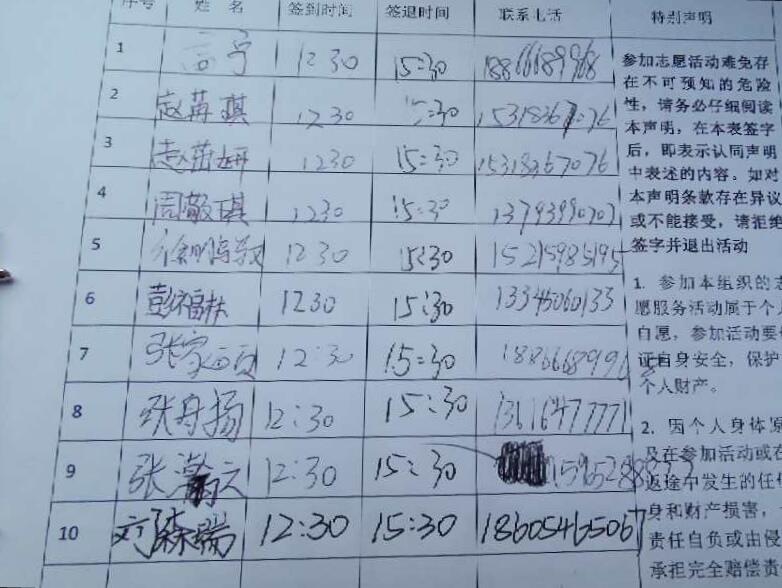 序号 姓 名 签到时间 签退时间 联系电话 特别声明
1 12:30 15:30 18866689968
2 赵苒琪 12:30 15:30
3 赵苗妍 1230 15:30 15318367076
4 周敬琪 1230 15:30
5 12:30 15:30 15215985195
6 彭福林 1230 15:30 13345060133
7 张家 12:30 15:30
8 张舟扬 12:30 15:30 13616477771
9 张瀚文 12:30 15:30
10 12:30 15:30 18605465067
参加志愿活动难免存
在不可预知的危险
性，请务必仔细阅读
本声明，在本表签字
后，即表示认同声明
中表述的内容。如对
本声明条款存在异议
或不能接受，请拒绝
签字并退出活动
1. 参加本组织的志
愿服务活动属于个人
自愿，参加活动要保
证自身安全，保护
个人财产。
2. 因个人身体原
及在参加活动或在
返途中发生的任
身和财产损害，
责任自负或由侵
承担完全赔偿责